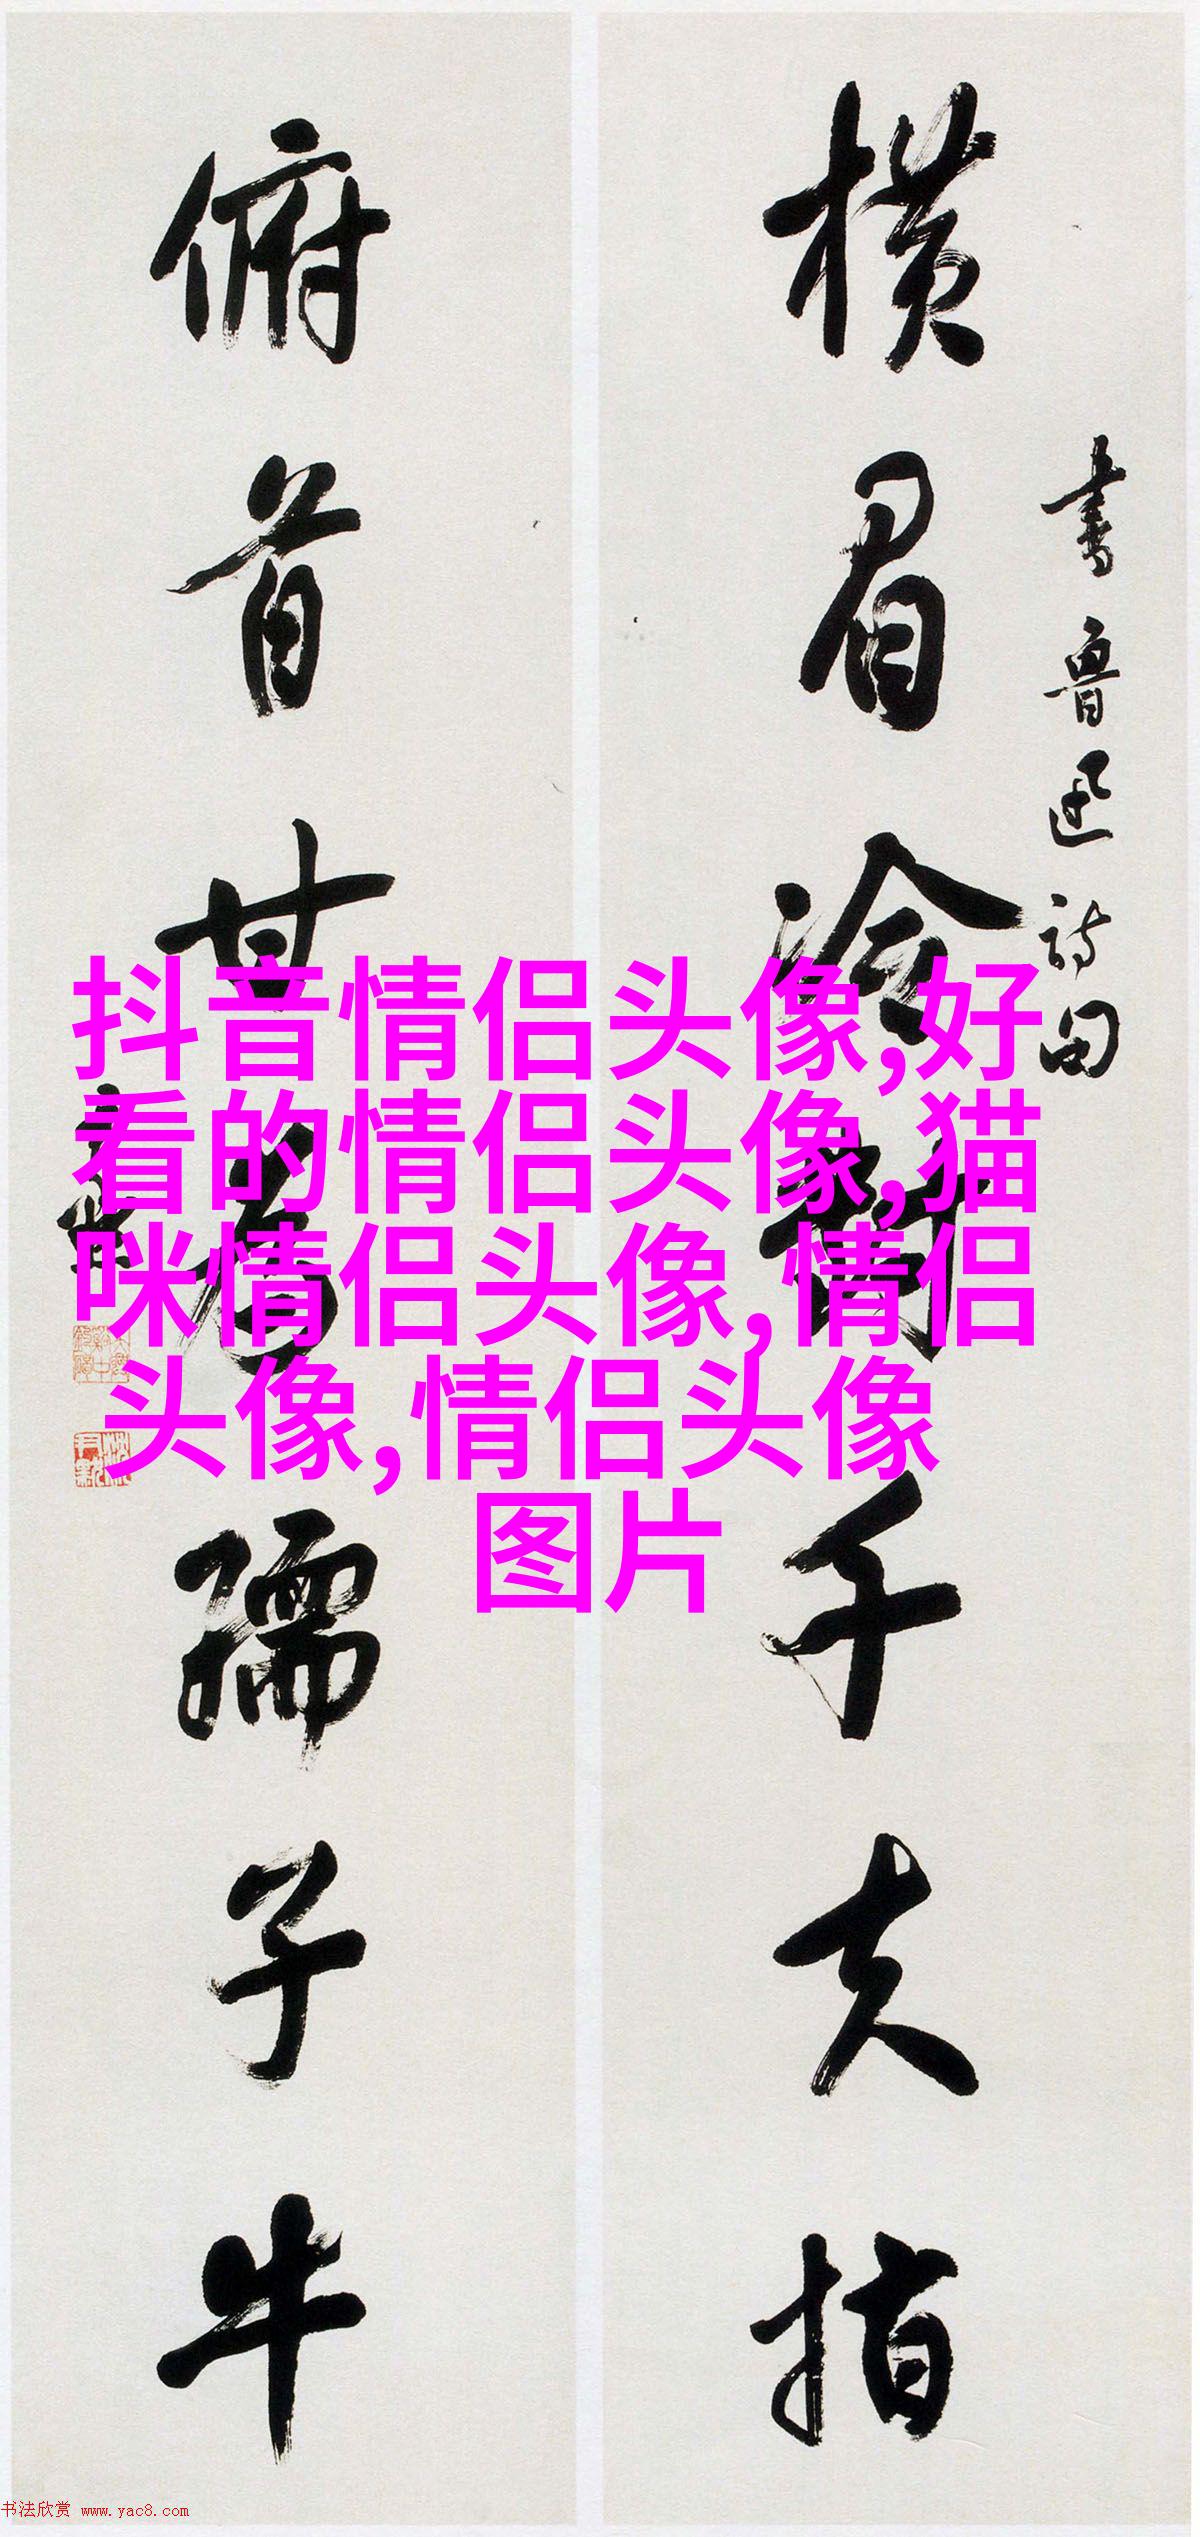 横眉冷對千夫指
書魯迅詩句
俯首甘為孺子牛
抖音情侣头像,好
看的情侣头像,猫
咪情侣头像,情侣
头像,情侣头像
图片
书法欣赏 www.yac8.com